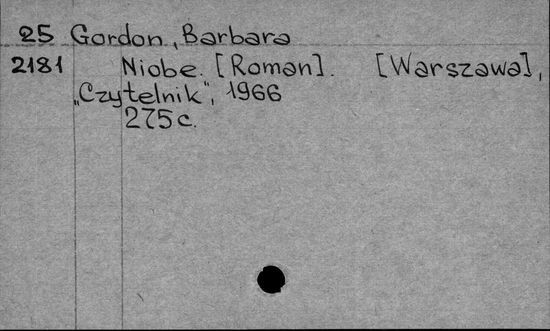 25 Gordon, Barbara
2181 Niobe. [Roman]. [Warszawa],
„Czytelnik", 1966
275 c.